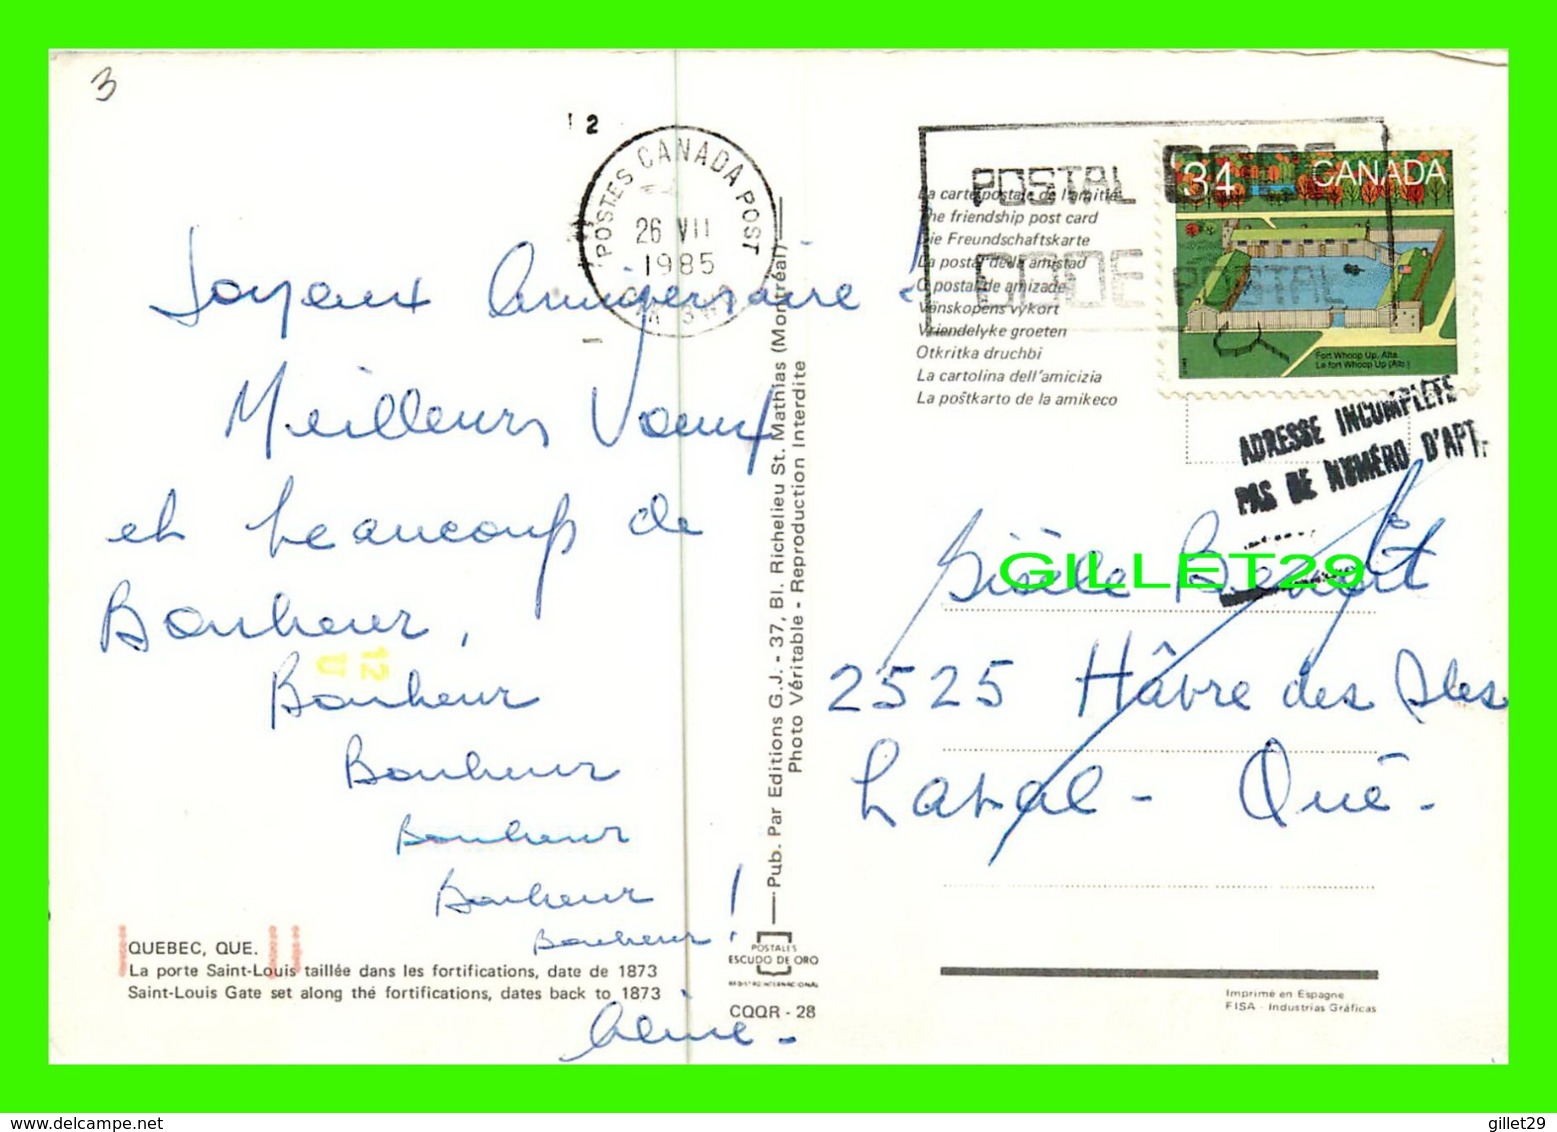 3
2
POSTES CANADA POST
26 VII
1985
Joyeux Anniversaire !
Meilleurs Voeux
et beaucoup de
Bonheur,
Bonheur
Bonheur
Bonheur
Bonheur
Bonheur !
12
U
QUEBEC, QUE.
La porte Saint-Louis taillée dans les fortifications, date de 1873
Saint-Louis Gate set along thé fortifications, dates back to 1873
Pub. Par Editions G.J. - 37, Bl. Richelieu St. Mathias (Montréal)
Photo Véritable - Reproduction Interdite
POSTALES
ESCUDO DE ORO
REGISTRO INTERNACIONAL
CQQR - 28
POSTAL CODE
CODE POSTAL
La carte postale de l'amitié
The friendship post card
Die Freundschaftskarte
La postal de la amistad
O postal de amizade
Vänskopens vykort
Vriendelyke groeten
Otkritka druchbi
La cartolina dell'amicizia
La poŝtkarto de la amikeco
34 CANADA
Fort Whoop Up, Alta.
Le fort Whoop Up (Alb.)
ADRESSE INCOMPLÈTE
PAS DE NUMÉRO D'APT.
Gisèle Benoit
GILLET29
2525 Hâvre des Isles
Laval - Qué.
Imprimé en Espagne
FISA - Industrias Gráficas
http://www.delcampe.net
gillet29